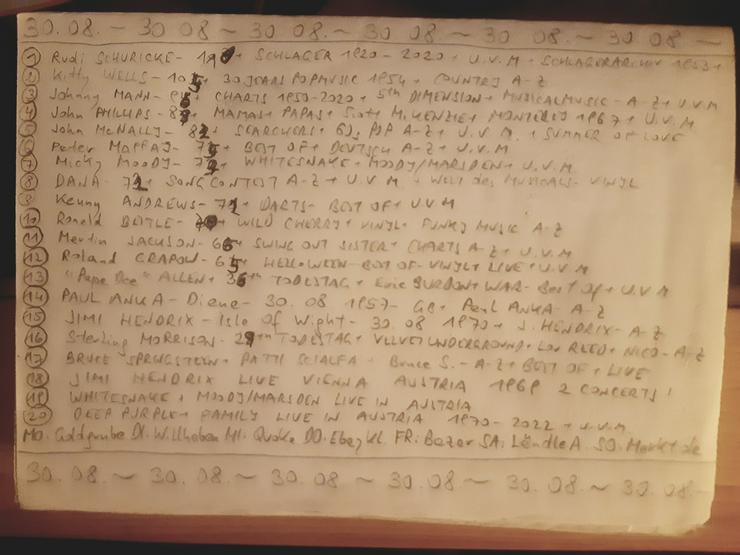 30.08. ~ 30.08 ~ 30.08. ~ 30.08. ~ 30.08. ~ 30.08. ~
① Rudi SCHURICKE - + SCHLAGER 1920 - 2020 + U.V.M + SCHLAGERARCHIV 1953+
② Kitty WELLS - 105 + 30 JEARS POPMUSIC 1954 + COUNTRY A-Z
③ Johnny MANN - + CHARTS 1950-2020 + 5th DIMENSION + MUSICALMUSIC - A-Z + U.V.M
④ John PHILLIPS - + MAMAS + PAPAS + Scott McKENZIE + MONTEREY 1967 + U.V.M
John McNALLY - 82 + SEARCHERS + 60s POP A-Z + U.V.M. + SUMMER OF LOVE
⑥ Peter MAFFAY - + BEST OF + DEUTSCH A-Z + U.V.M
⑦ Micky MOODY - + WHITESNAKE + MOODY/MARSDEN + U.V.M.
⑧ DANA - 72 + SONGCONTEST A-Z + U.V.M + Welt des MUSICALS - VINYL
⑨ Kenny ANDREWS - 72 + DARTS - BEST OF + U.V.M
⑩ Ronald BEITLE - + WILD CHERRY + VINYL + FUNKY MUSIC A-Z
⑪ Martin JACKSON - 66 + SWING OUT SISTER + CHARTS A-Z + U.V.M
⑫ Roland GRAPOW - 65 + HELLOWEEN - BEST OF - VINYL + LIVE + U.V.M
⑬ "Papa Dee" ALLEN + 36th TODESTAG + Eric BURDON + WAR - Best Of + U.V.M
⑭ PAUL ANKA - Diana - 30.08 1957 - GB + Paul ANKA A-Z
⑮ JIMI HENDRIX - Isle of Wight - 30.08 1970 + J. HENDRIX - A-Z
⑯ Sterling MORRISON - 29th TODESTAG + VELVET UNDERGROUND + LOU REED + NICO - A-Z
⑰ BRUCE SPRINGSTEEN + PATTI SCIALFA + Bruce S. - A-Z + BEST OF + LIVE
⑱ JIMI HENDRIX LIVE VIENNA AUSTRIA 1969 2 CONCERTS!
⑲ WHITESNAKE + MOODY/MARSDEN LIVE IN AUSTRIA
⑳ DEEP PURPLE + FAMILY LIVE IN AUSTRIA 1970 - 2022 + U.V.M.
MO. Goldgrube DI. Willhaben MI. Quoka DO. Ebay Kl. FR: Bazar SA: LändleA. SO. Markt de
30.08. ~ 30.08. ~ 30.08. ~ 30.08. ~ 30.08. ~ 30.08. ~